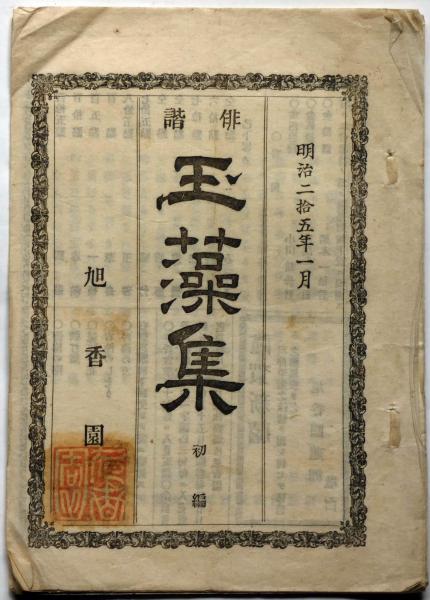 明治二拾五年一月
俳諧
玉藻集
初編
旭香園